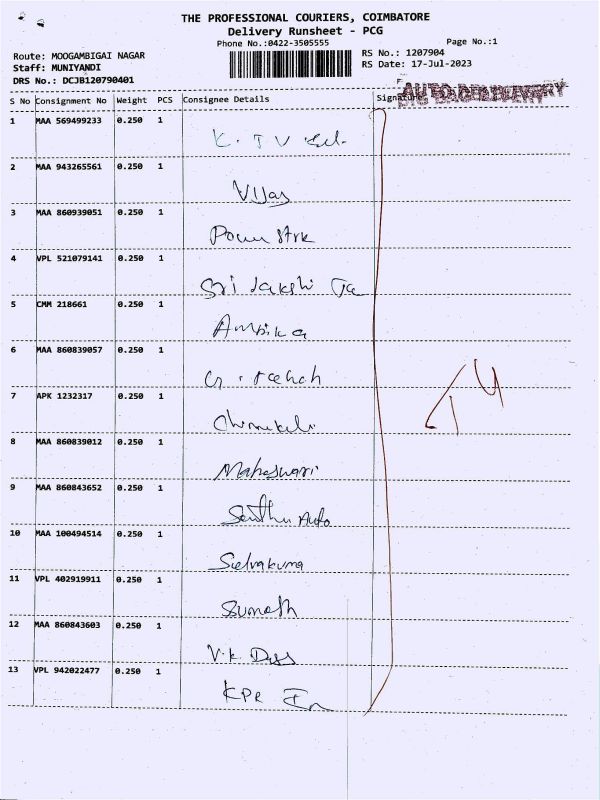 THE PROFESSIONAL COURIERS, COIMBATORE
Delivery Runsheet - PCG
Phone No.:0422-3505555
Page No.:1
Route: MOOGAMBIGAI NAGAR
RS No.: 1207904
Staff: MUNIYANDI
RS Date: 17-Jul-2023
DRS No.: DCJB120790401
S No Consignment No Weight PCS Consignee Details Signature
1 MAA 569499233 0.250 1
K. T V
2 MAA 943265561 0.250 1
Vijay
3 MAA 860939051 0.250 1
Power
4 VPL 521079141 0.250 1
Sri Lakshi
5 CMM 218661 0.250 1
Ambika
6 MAA 860839057 0.250 1
7 APK 1232317 0.250 1
8 MAA 860839012 0.250 1
Maheswari
9 MAA 860843652 0.250 1
Senthu Auto
10 MAA 100494514 0.250 1
Selvakuma
11 VPL 402919911 0.250 1
Sumath
12 MAA 860843603 0.250 1
V.K. Dass
13 VPL 942022477 0.250 1
KPR In